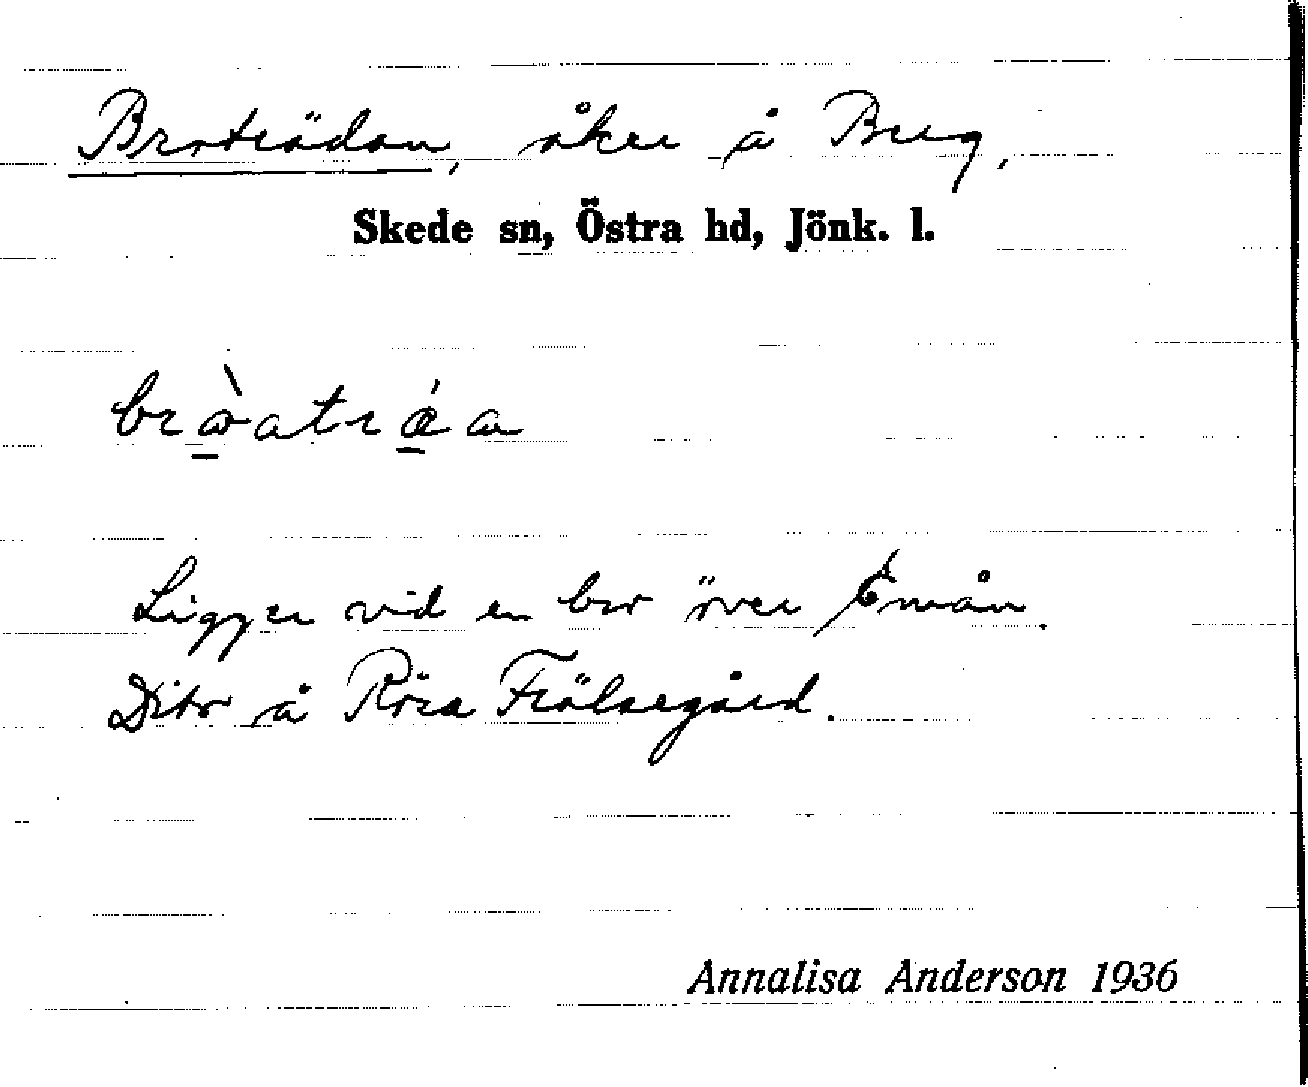 Broträdan, åker å Berg,
Skede sn, Östra hd, Jönk. l.
Ligger vid en bro över Emån.
Dito å Röra Frälsegård.
Annalisa Anderson 1936